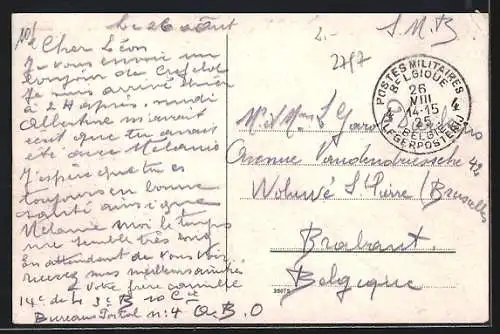 Le 26 août
Cher Léon
Je vous envoi un
bonjour de Crefeld
Je suis arrivé hier
à 2 h après midi
Albertine m'avait
écrit que tu avait
été avec Mélanie
J'espère que tu es
toujours en bonne
santé ainsi que
Mélanie moi le temps
me semble très long
En attendant de vous voir
recevez mes meilleurs amitiés
Votre frère Camille
14e de L 3e B 10 Cie
Bureau Postal n: 4 O.B.O
2.-
2757
S.M.B
POSTES MILITAIRES
BELGIQUE
26
VIII
14-15
25
BELGIË
LEGERPOSTERIJ
4 4
Mr et Mme L
Avenue Vandendriessche 42
Woluwé St Pierre (Bruxelles
Brabant.
Belgique